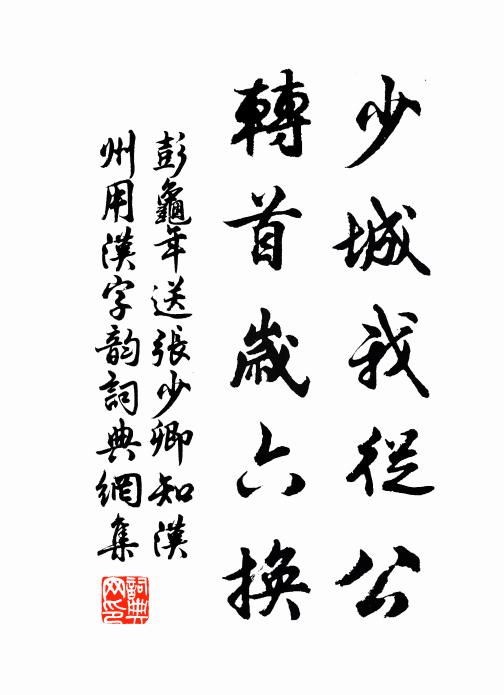 少城我從公
轉首歲六換
彭龜年送張少卿知漢
州用漢字韵詞典網集
詞典
网印